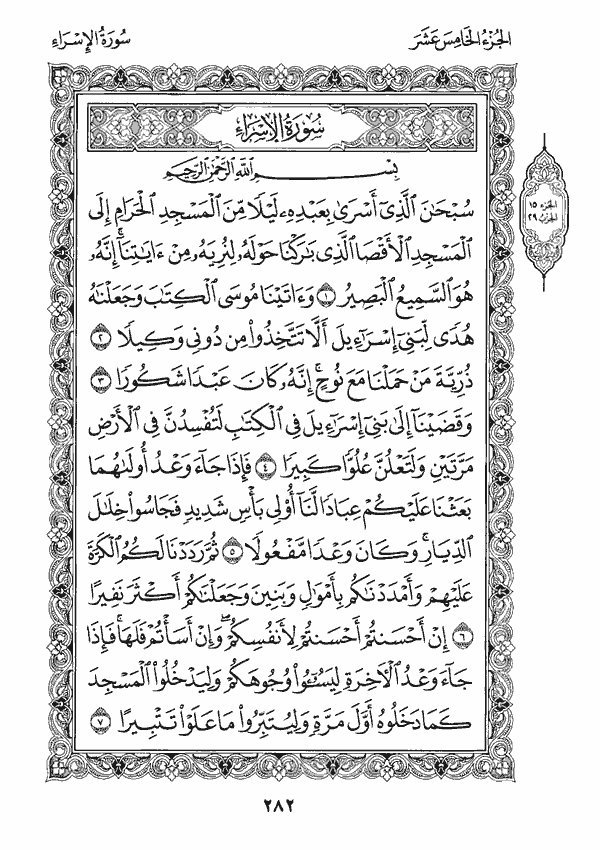 الجُزْءُ الخَامِسَ عَشَرَ
سُورَةُ الإِسْرَاءِ
سُورَةُ الإِسْرَاءِ
بِسْمِ ٱللَّهِ ٱلرَّحْمَٰنِ ٱلرَّحِيمِ
سُبْحَٰنَ ٱلَّذِىٓ أَسْرَىٰ بِعَبْدِهِۦ لَيْلًا مِّنَ ٱلْمَسْجِدِ ٱلْحَرَامِ إِلَى
ٱلْمَسْجِدِ ٱلْأَقْصَا ٱلَّذِى بَٰرَكْنَا حَوْلَهُۥ لِنُرِيَهُۥ مِنْ ءَايَٰتِنَآ ۚ إِنَّهُۥ
هُوَ ٱلسَّمِيعُ ٱلْبَصِيرُ ١ وَءَاتَيْنَا مُوسَى ٱلْكِتَٰبَ وَجَعَلْنَٰهُ
هُدًى لِّبَنِىٓ إِسْرَٰٓءِيلَ أَلَّا تَتَّخِذُوا۟ مِن دُونِى وَكِيلًا ٢
ذُرِّيَّةَ مَنْ حَمَلْنَا مَعَ نُوحٍ ۚ إِنَّهُۥ كَانَ عَبْدًا شَكُورًا ٣
وَقَضَيْنَآ إِلَىٰ بَنِىٓ إِسْرَٰٓءِيلَ فِى ٱلْكِتَٰبِ لَتُفْسِدُنَّ فِى ٱلْأَرْضِ
مَرَّتَيْنِ وَلَتَعْلُنَّ عُلُوًّا كَبِيرًا ٤ فَإِذَا جَآءَ وَعْدُ أُولَىٰهُمَا
بَعَثْنَا عَلَيْكُمْ عِبَادًا لَّنَآ أُو۟لِى بَأْسٍ شَدِيدٍ فَجَاسُوا۟ خِلَٰلَ
ٱلدِّيَارِ ۚ وَكَانَ وَعْدًا مَّفْعُولًا ٥ ثُمَّ رَدَدْنَا لَكُمُ ٱلْكَرَّةَ
عَلَيْهِمْ وَأَمْدَدْنَٰكُم بِأَمْوَٰلٍ وَبَنِينَ وَجَعَلْنَٰكُمْ أَكْثَرَ نَفِيرًا
٦ إِنْ أَحْسَنتُمْ أَحْسَنتُمْ لِأَنفُسِكُمْ ۖ وَإِنْ أَسَأْتُمْ فَلَهَا ۚ فَإِذَا
جَآءَ وَعْدُ ٱلْءَاخِرَةِ لِيَسُۥٓـُٔوا۟ وُجُوهَكُمْ وَلِيَدْخُلُوا۟ ٱلْمَسْجِدَ
كَمَا دَخَلُوهُ أَوَّلَ مَرَّةٍ وَلِيُتَبِّرُوا۟ مَا عَلَوْا۟ تَتْبِيرًا ٧
الجزء ١٥
الحزب ٢٩
٢٨٢